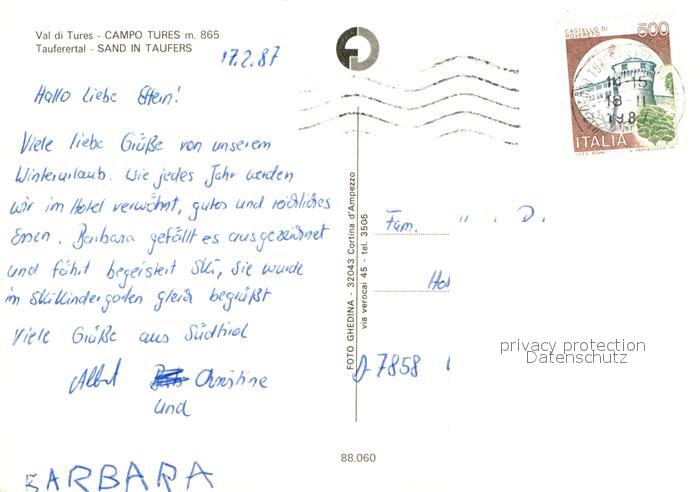 Val di Tures - CAMPO TURES m. 865
Tauferertal - SAND IN TAUFERS
17.2.87
Hallo liebe
Viele liebe Grüße von unserem
Winterurlaub. Wie jedes Jahr werden
wir im Hotel verwöhnt, gutes und reichliches
Essen. Barbara gefällt es ausgezeichnet
und fährt begeistert Ski, Sie wurde
im Skikindergarten gleich begrüßt
Viele Grüße aus Südtirol
Albert Christine
und
BARBARA
FOTO GHEDINA - 32043 Cortina d'Ampezzo
via verocai 45 - tel. 3505
CASTELLO DI
ROVERETO
500
ITALIA
18 II
1987
Fam. D.
Hot
D-7858
privacy protection
Datenschutz
88.060